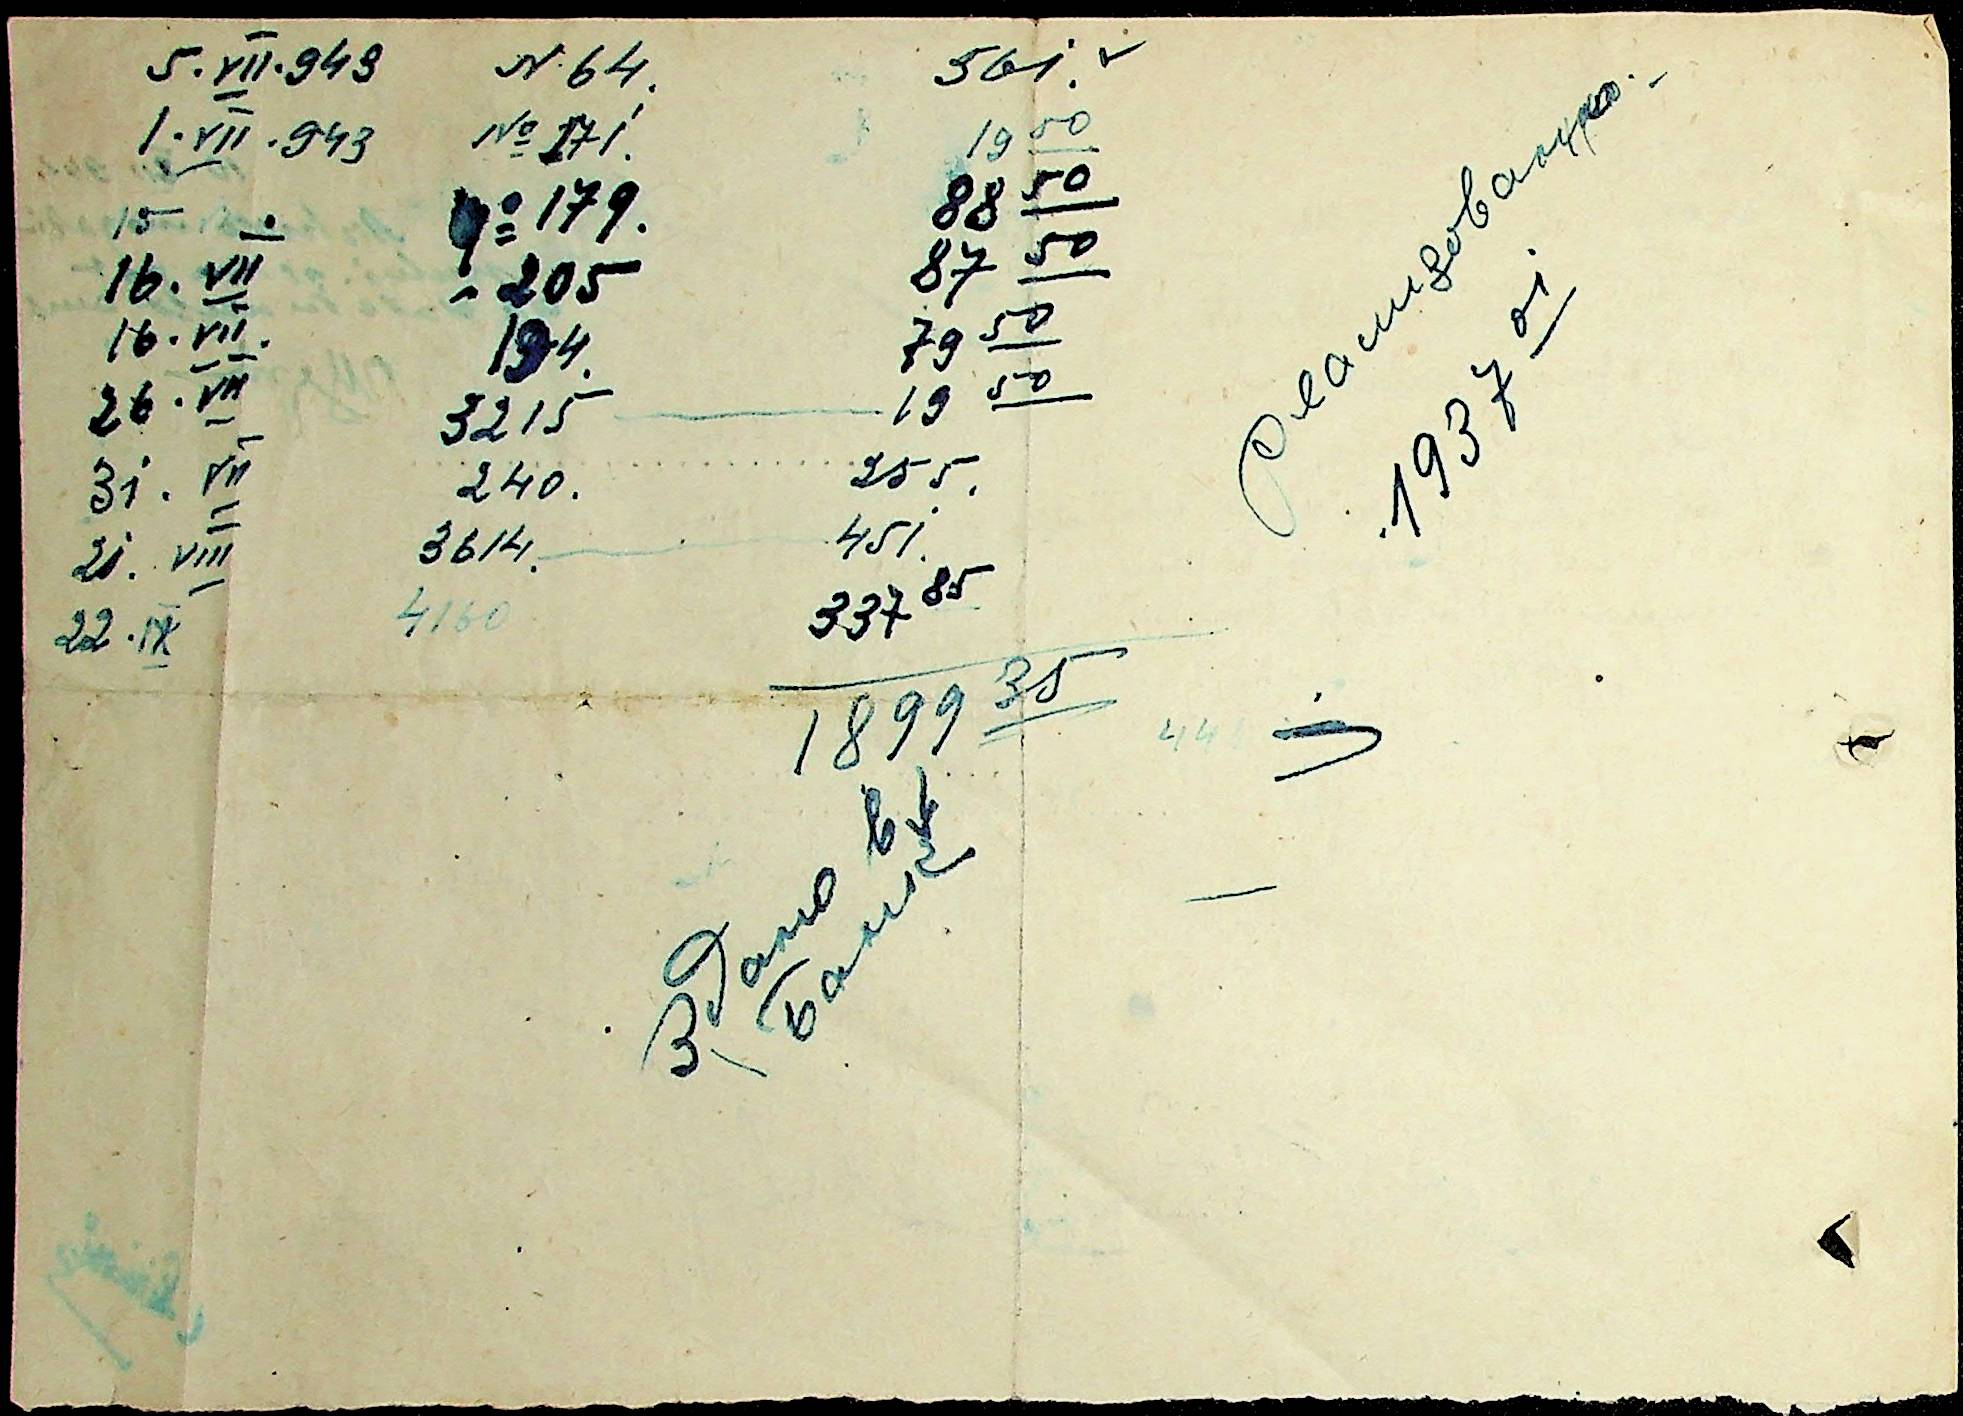 5.VII.943 N 64. 561.
1.VII.943 № 171. 19 50
15 № 179. 88 50
16.VII 205 87 50
16.VII. 194. 79 50
26.VII 3215 — 19 50
31.VII 240. 255.
21.VIII 3614. — 451.
22.IX 4160 337 85
1899 35
1937 01
Здано в
Банк